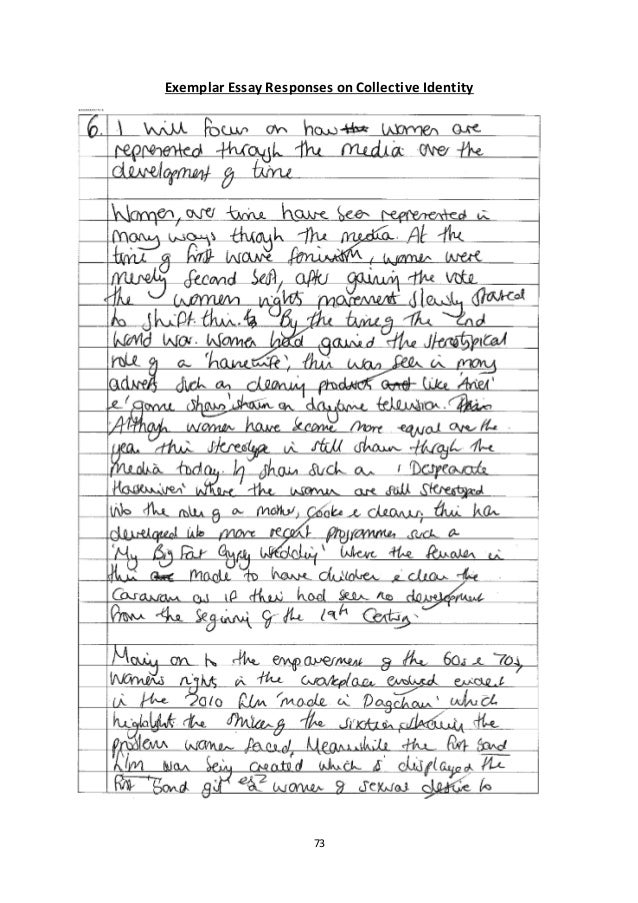 Exemplar Essay Responses on Collective Identity
6. I will focus on how the women are
represented through the media over the
development of time
Women, over time have been represented in
many ways through the media. At the
time of first wave feminism, women were
merely second best, after gaining the vote
the women rights movement slowly started
to shift this. By the time of the 2nd
World War. Women had gained the stereotypical
role of a 'housewife', this was seen in many
adverts such as cleaning products and like 'Ariel'
e' shown on daytime television. This
Although women have become more equal over the
year this stereotype is still shown through the
media today. In shows such as 'Despearate
Housewives' where the women are still stereotyped
into the roles of a mother, cooke & cleaner, this has
developed into more recent programmes such a
'My Big Fat Gypsy Wedding' where the females in
this are made to have children & clean the
caravan as if their had been no development
from the begining of the 19th Century.
Moving on to the empowerment of the 60s & 70s,
womens rights in the workplace evolved evident
in the 2010 film 'made in Dagehan' which
highlights the striking the sixties, showing the
problem women faced, Meanwhile the first bond
film was being created which displayed the
first 'Bond girl' women of sexual desire to
73